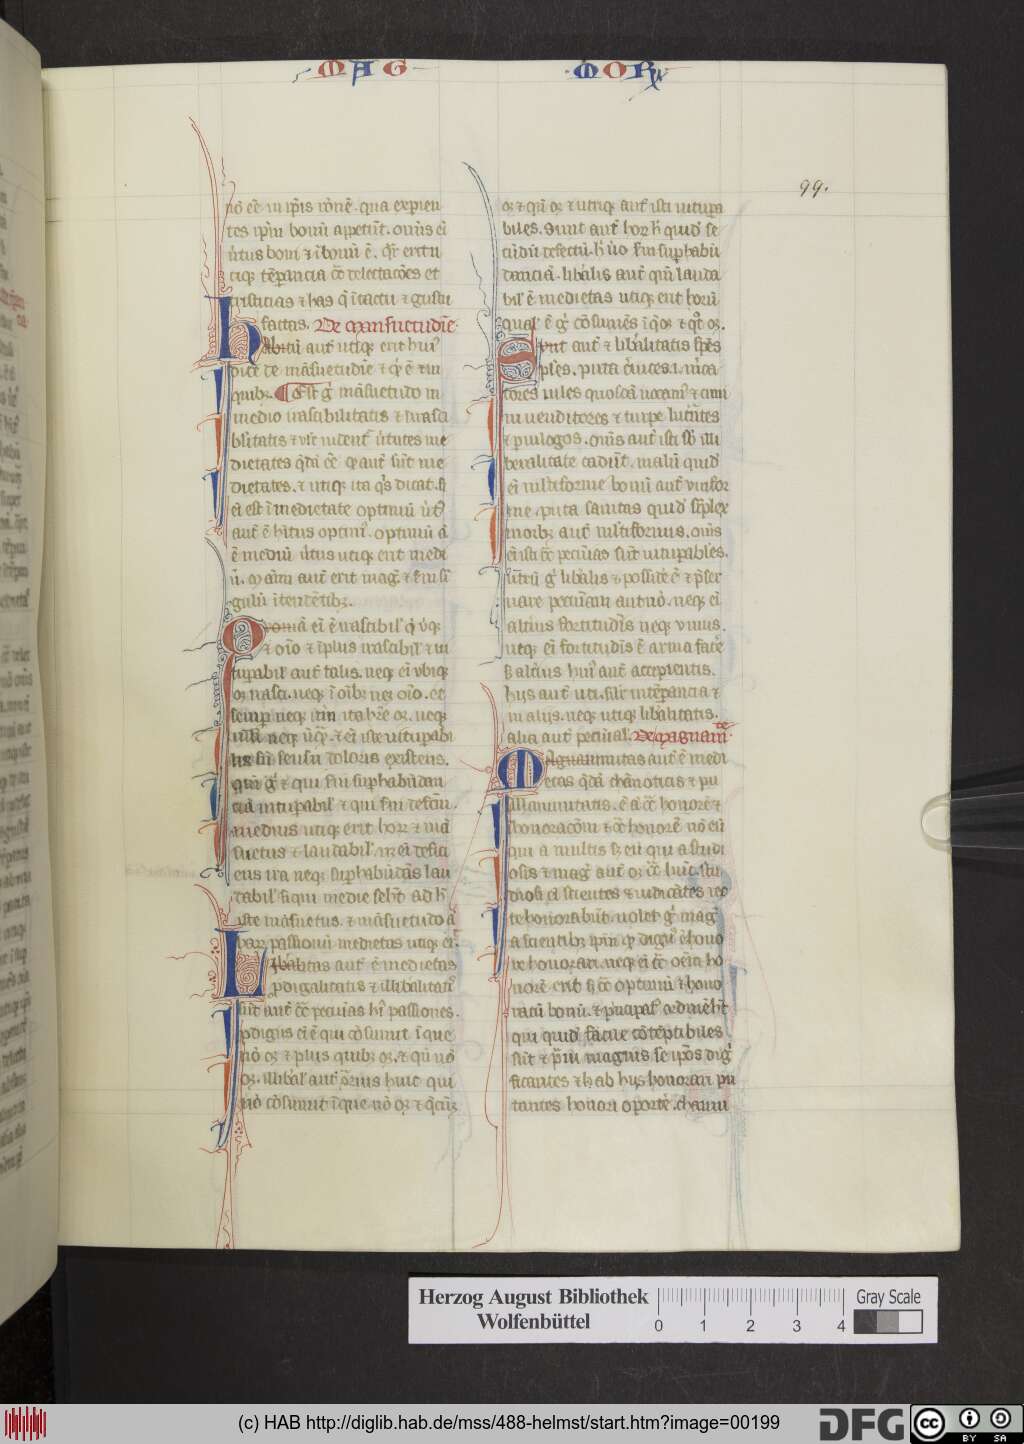 MAG MOR
99.
nō eē in ip̄is rōnē. qua expien
tes ip̄m bonū appetūt. om̄is ei
ūtus boni & ī bonū ē. qr̄ erit u
tiqꝫ tēp̄ancia cc̄ delectacōes et
tristicias & has q̄ ī tactu & gustu
factas. De mansuetudīe.
Habitū aut̄ utiqꝫ erit huiꝰ
dicē de māsuetudīe & qͥ ē & in
quibꝫ. ¶ Est gͥ māsuetudo in
medio irascibilitatis & inirasci
bilitatis & vlr̄ uident̄ ūtutes me
dietates qͥdā eē. qꝫ aut̄ sūt me
dietates. & utiqꝫ ita qͥs dicat. si
ei est ī medietate optimū ūtꝰ
aut̄ ē hītus optimꝰ. optimū ā
ē mediū ūtus utiqꝫ erit medi
ū. maī aut̄ erit maḡ & s̄m sī
gulū ītendētibꝫ.
& oīo & īplus irascibil' & ui
tupabil' aut̄ talis. neqꝫ ei ubiqꝫ
oꝫ irasci. neqꝫ ī oībꝫ neqꝫ oīo. et
semp̄ neqꝫ itīn ita hr̄e oꝫ. ueqꝫ
lis sū sensu doloris existens.
qui gͥ & qui s̄m suphabūdan
ciā uitupabil' & qui s̄m defcū.
medius utiqꝫ erit horꝫ & mā
suetus & laudabil'. neqꝫ ei defici
ens ira neqꝫ suphabūdās lau
dabil' si qui medie se hēt ad h̄
iste māsuetus. & māsuetudo ā
harꝫ passionū medietas utiqꝫ eīt.
Libalitas aut̄ ē medietas
pdigalitatis & illibalitatis
sūt aut̄ cc̄ pecuias hī passiones.
pdigus ei ē qui cōsumit ī que
nō oꝫ & plus quibꝫ oꝫ. & qn̄ nō
oꝫ. illibal' aut̄ 9trius huic qui
nō cōsumit ī que nō oꝫ & qͣtūꝫ
oꝫ & qn̄ oꝫ & utiqꝫ aut̄ isti uitupa
biles. Sunt aut̄ horꝫ h̄ quid' se
cūdū defectū. h̄ uo s̄m suphabū
danciā. libalis aut̄ qm̄ lauda
bil' ē medietas utiqꝫ erit horū
qual' ē gͥ cōsumēs ī qͦꝫ & qn̄ oꝫ.
Sūt aut̄ & libālitatis sp̄es
tores uiles quosdā uocamꝰ & cimi
ni uenditores & turpe lucrātes
& puilogos. om̄is aut̄ isti sb̄ illi
beralitate cadūt. malū quid'
ei mltiforme bonū aut̄ vnifor
me. puta sanitas quid' simplex
morbꝫ aut̄ mltiformis. om̄is
ei isti cc̄ pecuīas sūt uitupabiles.
utrū gͥ libalis & possidē ē & p̄ser
uare pecuīam aut nō. neqꝫ ei
altius fortitudīs neqꝫ vnius.
neqꝫ ei fortitudīs ē arma facē
s̄ altius huiꝰ aut̄ accipientis.
hijs aut̄ uti. silr̄ intēperancia &
in alijs. neqꝫ utiqꝫ libalitatis.
alia aut̄ pecuīal'. De magnanimi te.
Magnanimitas aut̄ ē medi
etas qͥdā chaīnotitas & pu
sillanimitatis. ē ā cc̄ honorē &
īhonoracōm & cc̄ honorē nō eū
qui a multis sꝫ eū qui a studi
osis & magͥ aut̄ oꝫ cc̄ hūc. stu
diosi ei scientes & iudicātes rec
te honorabūt. uolet gͥ magͥ
a scientibꝫ ip̄m qꝫ dignꝰ ē hono
re honorari. neqꝫ ei cc̄ oem ho
norē erit s̄ cc̄ optimū & hono
ratū bonū. & p̄ncipal' ordinē hēt
qui quid' facile cōtēptibiles
sūt & p̄ui magnis se ip̄os digͥ
ficantes & h ab hijs honorari pu
tantes honori oportē. chaīni
Herzog August Bibliothek
Wolfenbüttel
0 1 2 3 4
Gray Scale
(c) HAB http://diglib.hab.de/mss/488-helmst/start.htm?image=00199
DFG
cc BY SA